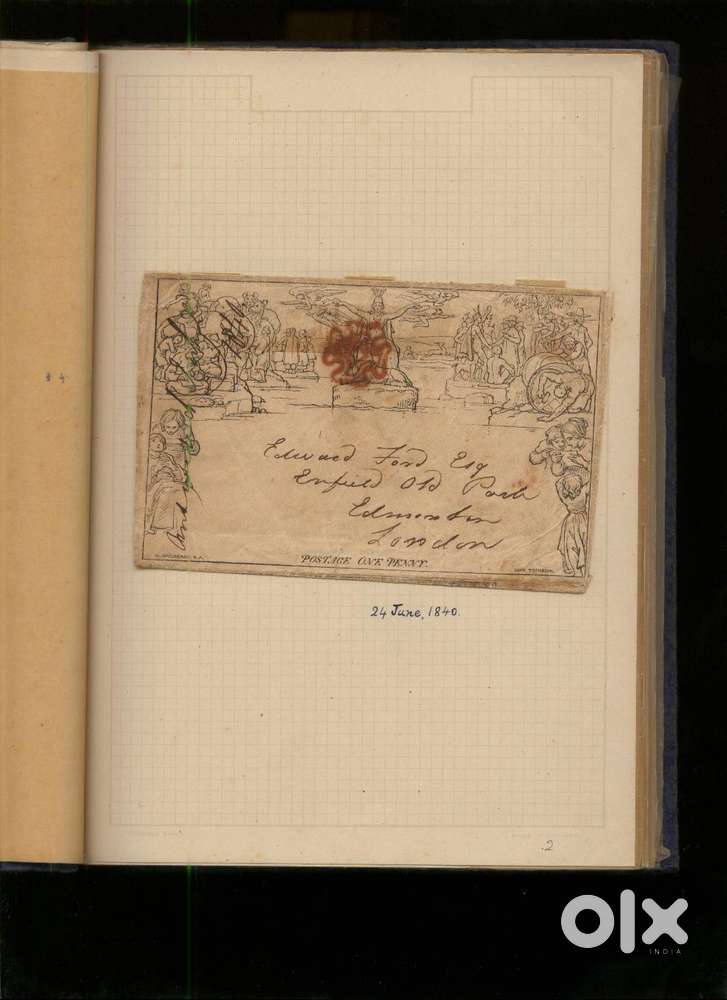 Edward Ford Esq
Enfield Old Park
Edmonton
London
POSTAGE ONE PENNY.
W. MULREADY. R.A.
JOHN THOMPSON.
24 June, 1840.
2
olx
INDIA